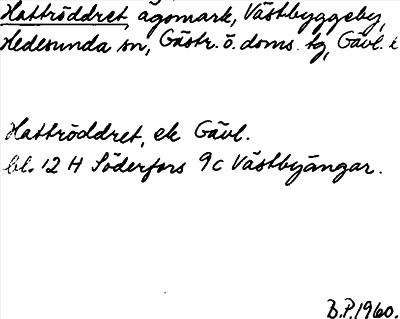 Hattröddret ägomark, Västbyggeby,
Hedesunda sn, Gästr. ö. doms. tg, Gävl. l
Hattröddret, ek Gävl.
bl. 12 H Söderfors 9c Västbyängar.
B.P. 1960.